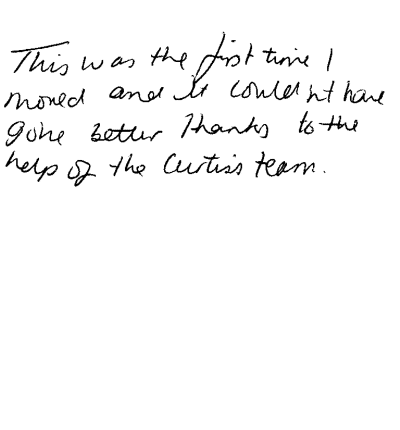 This was the first time I
moved and it couldn't have
gone better Thanks to the
help of the Curtiss team.